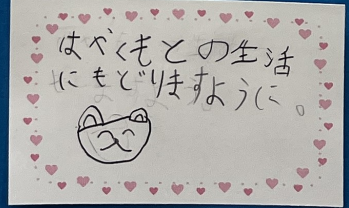 はやくもとの生活
にもどりますように。